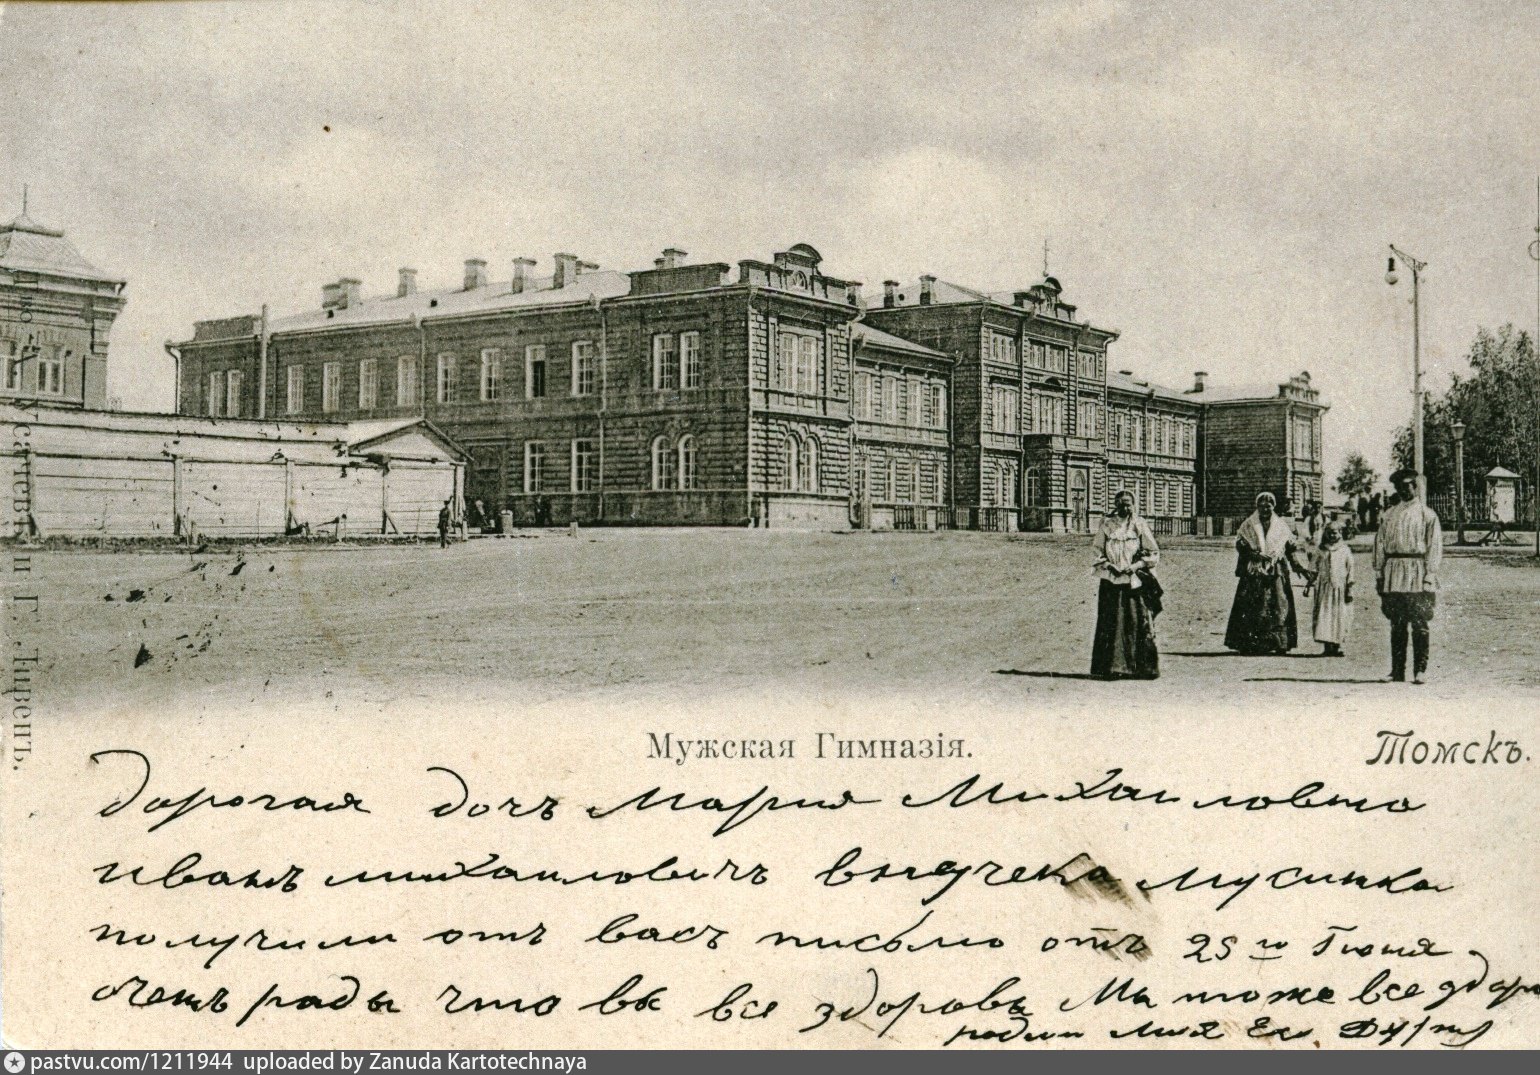 Мужская Гимназія.
Томскъ.
сачевъ и Г. Ливенъ.
дорогая дочъ Мария Михаиловна
иванъ михаиловичъ внучека мусинка
получили отъ васъ письмо отъ 25 го Iюня
оченъ рады что вы все здоровы Мы тоже все здоро
pastvu.com/1211944 uploaded by Zanuda Kartotechnaya